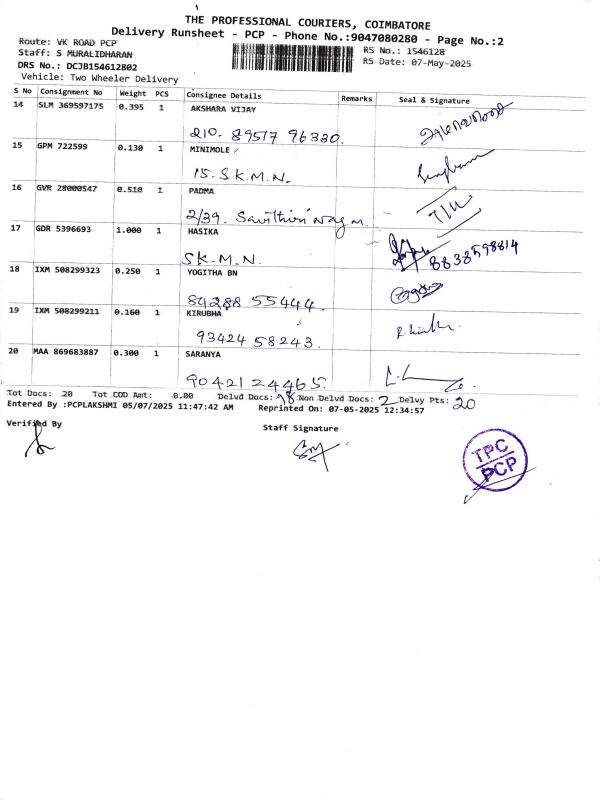 THE PROFESSIONAL COURIERS, COIMBATORE
Delivery Runsheet - PCP - Phone No.:9047080280 - Page No.:2
Route: VK ROAD PCP
RS No.: 1546128
Staff: S MURALIDHARAN
RS Date: 07-May-2025
DRS No.: DCJB154612802
Vehicle: Two Wheeler Delivery
S No Consignment No Weight PCS Consignee Details Remarks Seal & Signature
14 SLM 369597175 0.395 1 AKSHARA VIJAY
210. 89517 96330.
15 GPM 722599 0.130 1 MINIMOLE
15. S.K.M.N.
16 GVR 28000547 0.510 1 PADMA
2/39. Savithiri Nagar.
17 GDR 5396693 1.000 1 HASIKA
8838598814
SK.M.N.
18 IXM 508299323 0.250 1 YOGITHA BN
84288 55444.
19 IXM 508299211 0.160 1 KIRUBHA
93424 58243.
20 MAA 869683887 0.300 1 SARANYA
90421 24465.
Tot Docs: 20 Tot COD Amt: 0.00 Delvd Docs: 18 Non Delvd Docs: 2 Delvy Pts: 20
Entered By :PCPLAKSHMI 05/07/2025 11:47:42 AM Reprinted On: 07-05-2025 12:34:57
Verified By
Staff Signature
TPC
PCP